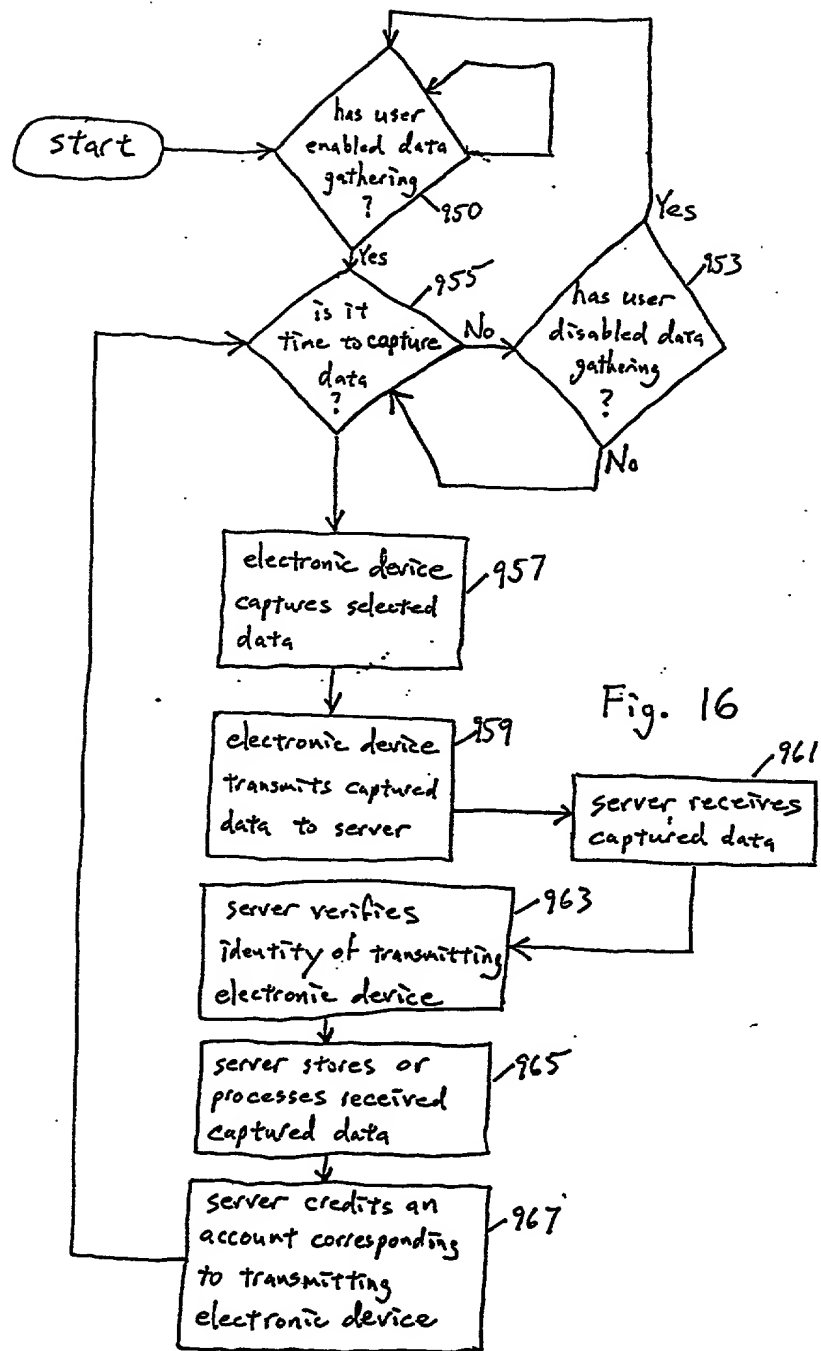 start
has user
enabled data
gathering
?
950
Yes
is it
time to capture
data
?
955
No
has user
disabled data
gathering
?
953
Yes
No
electronic device
captures selected
data
957
electronic device
transmits captured
data to server
959
Fig. 16
server receives
captured data
961
server verifies
identity of transmitting
electronic device
963
server stores or
processes received
captured data
965
server credits an
account corresponding
to transmitting
electronic device
967